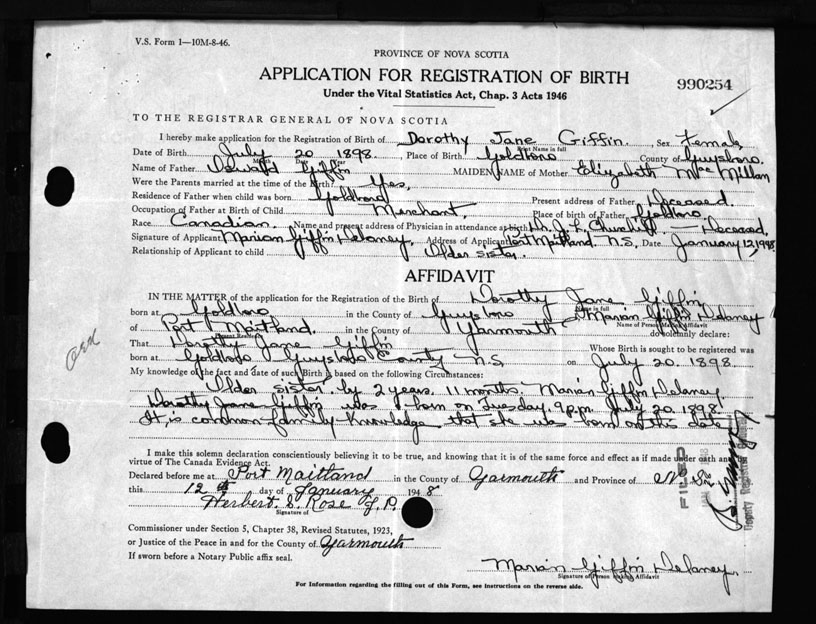 V.S. Form 1—10M-8-46.
PROVINCE OF NOVA SCOTIA
APPLICATION FOR REGISTRATION OF BIRTH
990254
Under the Vital Statistics Act, Chap. 3 Acts 1946
TO THE REGISTRAR GENERAL OF NOVA SCOTIA
I hereby make application for the Registration of Birth of Dorothy Jane Giffin. Sex Female
Print Name in full
Date of Birth July 20 1898. Place of Birth Goldboro County of Guysboro.
Month Date Year
Name of Father Giffin MAIDEN NAME of Mother Elizabeth MacMillan
Were the Parents married at the time of the Birth? Yes,
Residence of Father when child was born Goldboro Present address of Father Deceased.
Occupation of Father at Birth of Child Merchant. Place of birth of Father Goldboro.
Race Canadian. Name and present address of Physician in attendance at birth Dr. J. L. Churchill — Deceased.
Signature of Applicant Marian Giffin Delaney. Address of Applicant Port Maitland N.S. Date January 12, 1948
Relationship of Applicant to child Older sister.
AFFIDAVIT
IN THE MATTER of the application for the Registration of the Birth of Dorothy Jane Giffin
born at Goldboro in the County of Guysboro Marian Giffin Delaney
Name of Person Making Affidavit
of Port Maitland. in the County of Yarmouth do solemnly declare:
That Dorothy Jane Giffin Whose Birth is sought to be registered was
born at Goldboro Guysboro County N.S. on July 20. 1898.
My knowledge of the fact and date of such Birth is based on the following Circumstances:
Older sister by 2 years. 11 months. Marian Giffin Delaney
Dorothy Jane Giffin was born on Tuesday. 9 p.m. July 20. 1898.
It is common family knowledge that she was born on this date
I make this solemn declaration conscientiously believing it to be true, and knowing that it is of the same force and effect as if made under oath and
virtue of The Canada Evidence Act.
Declared before me at Port Maitland in the County of Yarmouth and Province of N.S.
this 12th day of January 1948
Herbert S. Rose J.P.
Signature of
Commissioner under Section 5, Chapter 38, Revised Statutes, 1923,
or Justice of the Peace in and for the County of Yarmouth
If sworn before a Notary Public affix seal.
Marian Giffin Delaney.
Signature of Person Making Affidavit
For Information regarding the filling out of this Form, see instructions on the reverse side.
FILED
Deputy Registrar